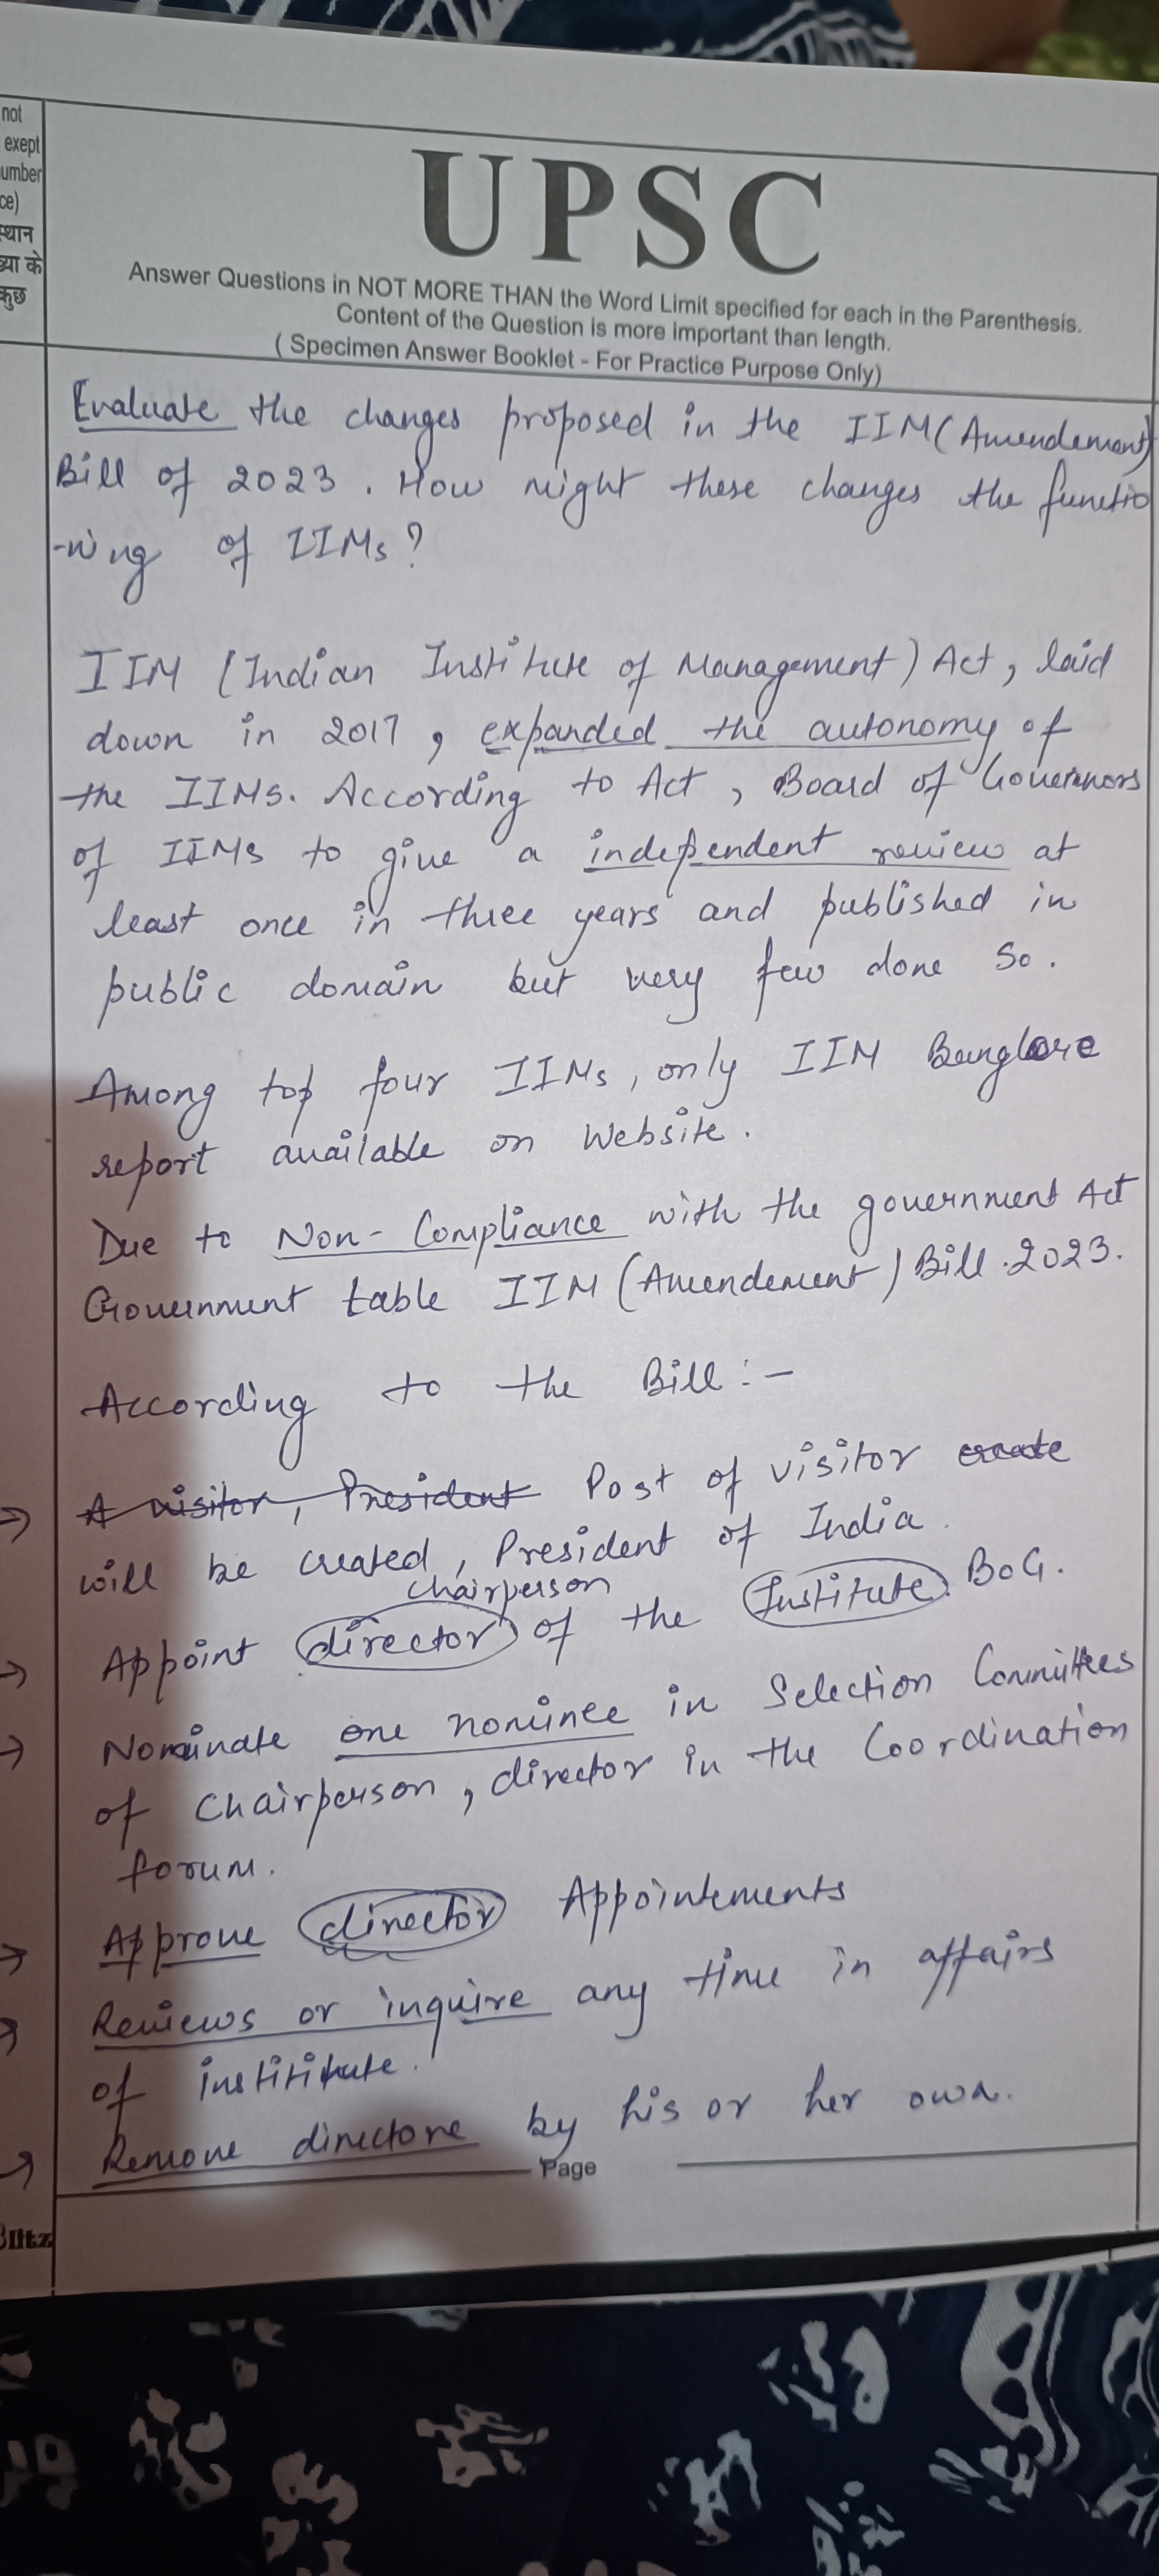 not
exept
umber
ce)
स्थान
ख्या के
कुछ
UPSC
Answer Questions in NOT MORE THAN the Word Limit specified for each in the Parenthesis.
Content of the Question is more important than length.
( Specimen Answer Booklet - For Practice Purpose Only)
Evaluate the changes proposed in the IIM (Amendement)
Bill of 2023. How might these changes the functio
-ning of IIMs?
IIM (Indian Institute of Management) Act, laid
down in 2017, expanded the autonomy of
the IIMs. According to Act, Board of Governors
of IIMs to give a independent review at
least once in three years and published in
public domain but very few done so.
Among top four IIMs, only IIM Banglore
report available on Website.
Due to Non-Compliance with the government Act
Government table IIM (Amendement) Bill 2023.
According to the Bill :-
→ A visitor, President Post of visitor create
will be created, President of India.
chairperson
→ Appoint director of the Institute BoG.
→ Nominate one nominee in Selection Committees
of Chairperson, director in the Coordination
forum.
→ Approve director Appointements
→ Reviews or inquire any time in affairs
of institute.
→ Remove directore by his or her own.
Page
Blitz